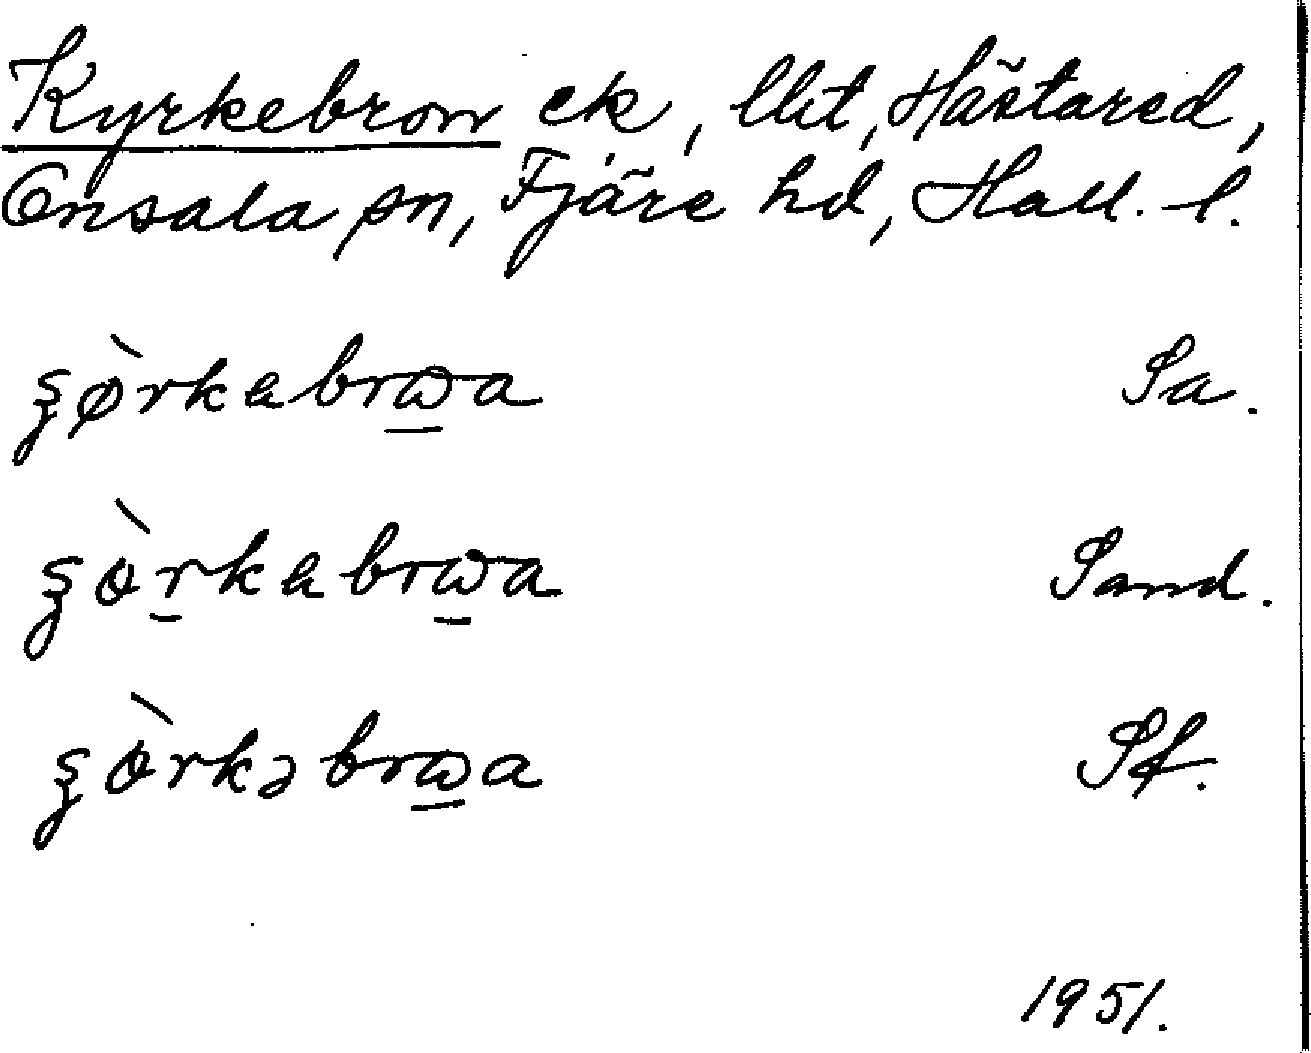 Kyrkebron ek, llit, Hästared,
Onsala sn, Fjäre hd, Hall. l.
ʂø̀rkabrɷ̱a Sa.
ʂòṟkabrɷ̱a Sand.
ʂòrkəbrɷ̱a Sf.
1951.